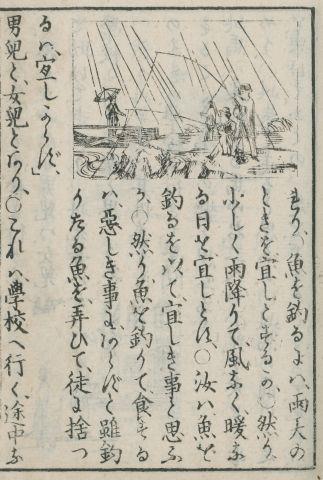 れり、○魚を釣るには、雨天の
ときを宜しとするか、○然り、
少しく雨降りて、風なく、暖な
る日を宜しとす、○汝は、魚を
釣るを以て宜しき事と思ふ
か、○然り、魚を釣りて、食する
は、惡しき事にあらずと雖、釣
りたる魚を弄ひて、徒に捨つ
るは、宜しからず、」
男兒と、女兒とあり、○これは、學校へ行く途中な